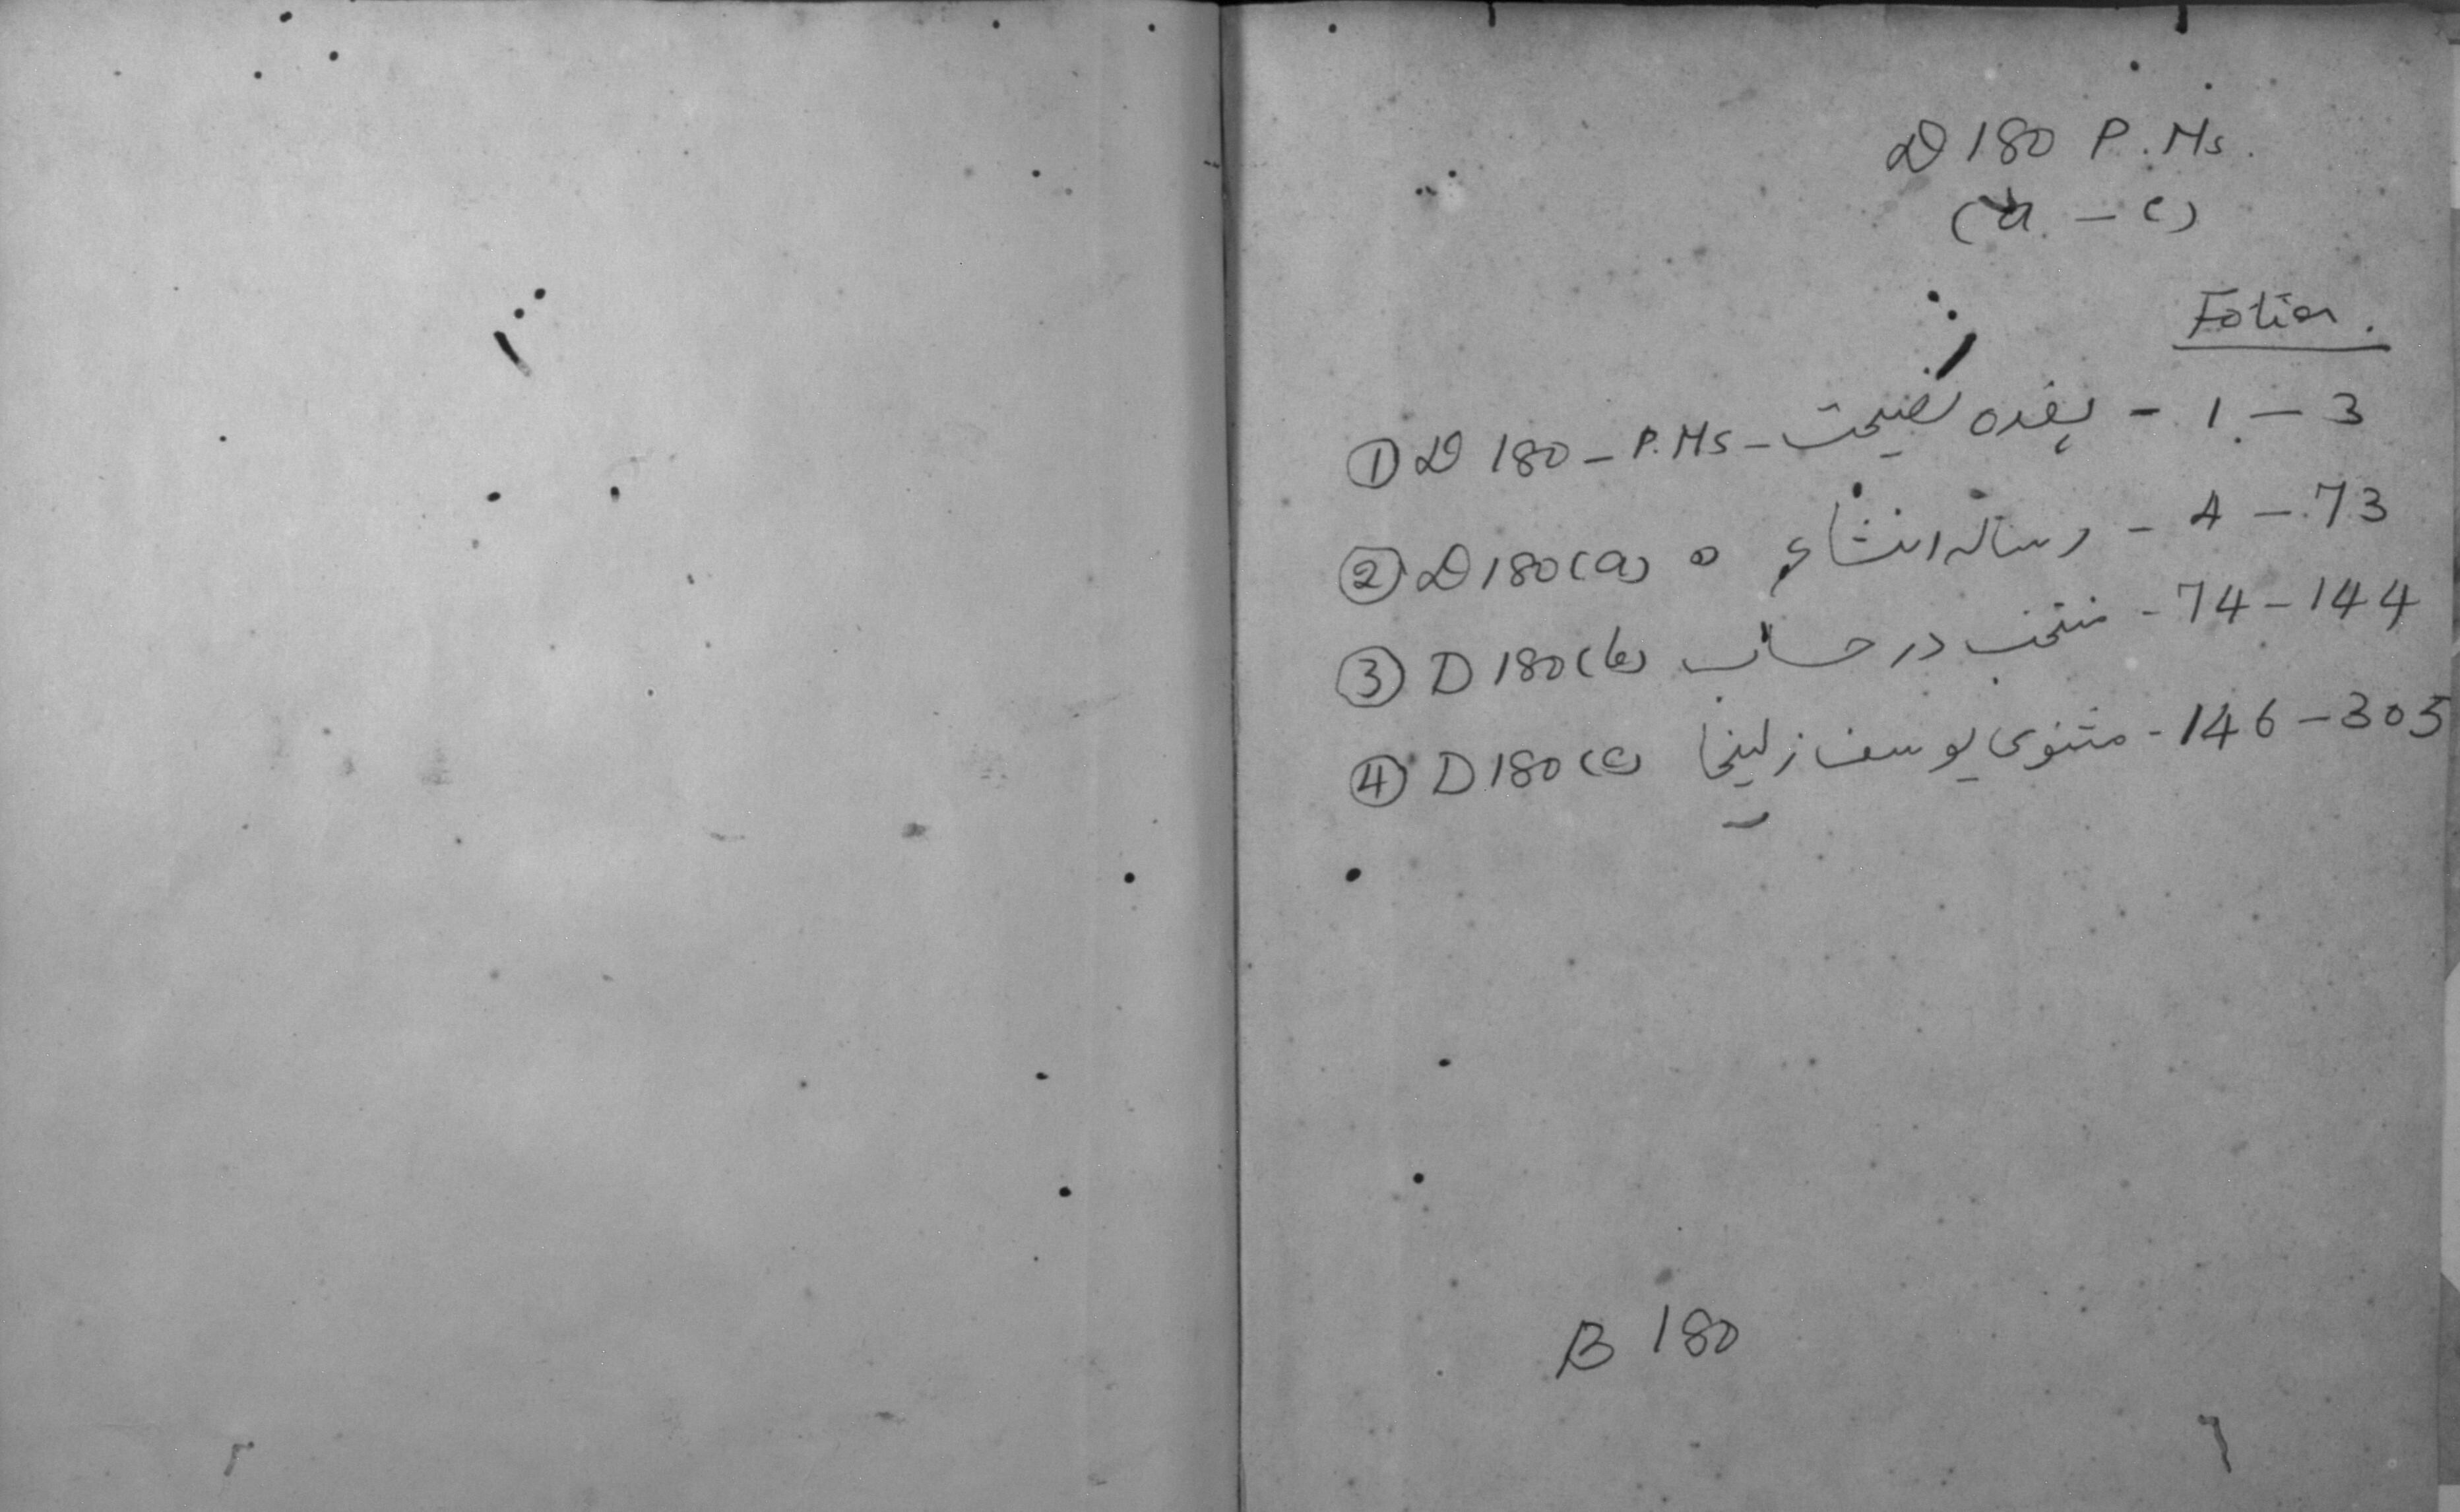 D 180 P. Ms.
(a - c)
Folios.
① D 180 - P.Ms - ہفدہ نصیحت - 1 - 3
② D 180 (a) رسالہ انشاء - 4 - 73
③ D 180 (b) منتخب در حساب - 74 - 144
④ D 180 (c) مثنوی یوسف زلیخا - 146 - 305
B 180